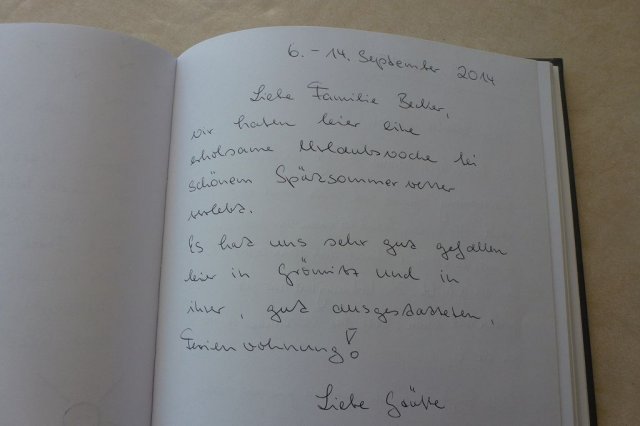 6. – 14. September 2014
Liebe Familie Becker,
wir haben hier eine
erholsame Urlaubswoche bei
schönem Spätsommerwetter
verlebt.
Es hat uns sehr gut gefallen
hier in Grömitz und in
ihrer, gut ausgestatteten,
Ferienwohnung!
Liebe Grüße